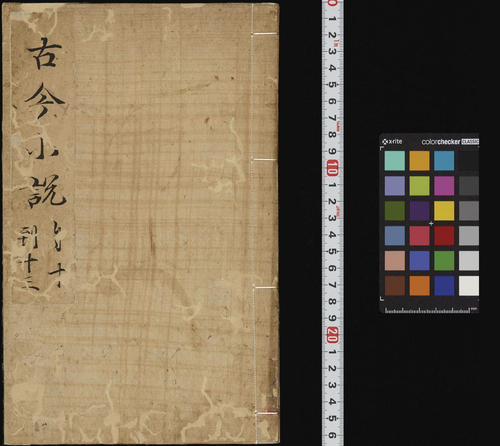 古今小説
十
列十三
x-rite
colorchecker CLASSIC
1 2 3 4 5 6 7 8 9 10 1 2 3 4 5 6 7 8 9 20 1 2 3 4 5 6
mm